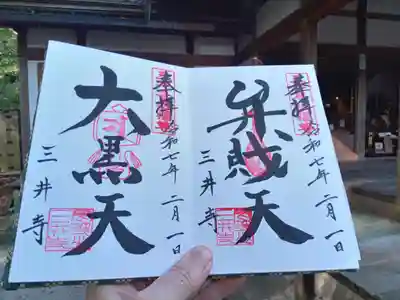 奉拝 令和七年 二月一日
弁財天
三井寺
奉拝 令和七年 二月一日
大黒天
三井寺